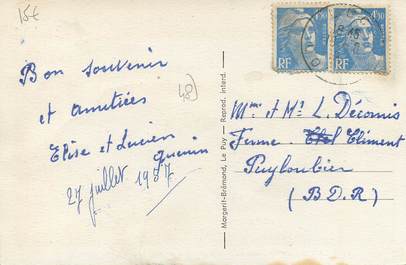 15€
Bon souvenir
et amitiées
48
Elise et Lucien
27 juillet 1957
Margerit-Brémond, Le Puy — Reprod. interd.
RF
RF 4,50
Mme et Mr L. Décomis
Ferme Climent
Puyloubier
(B.D.R)